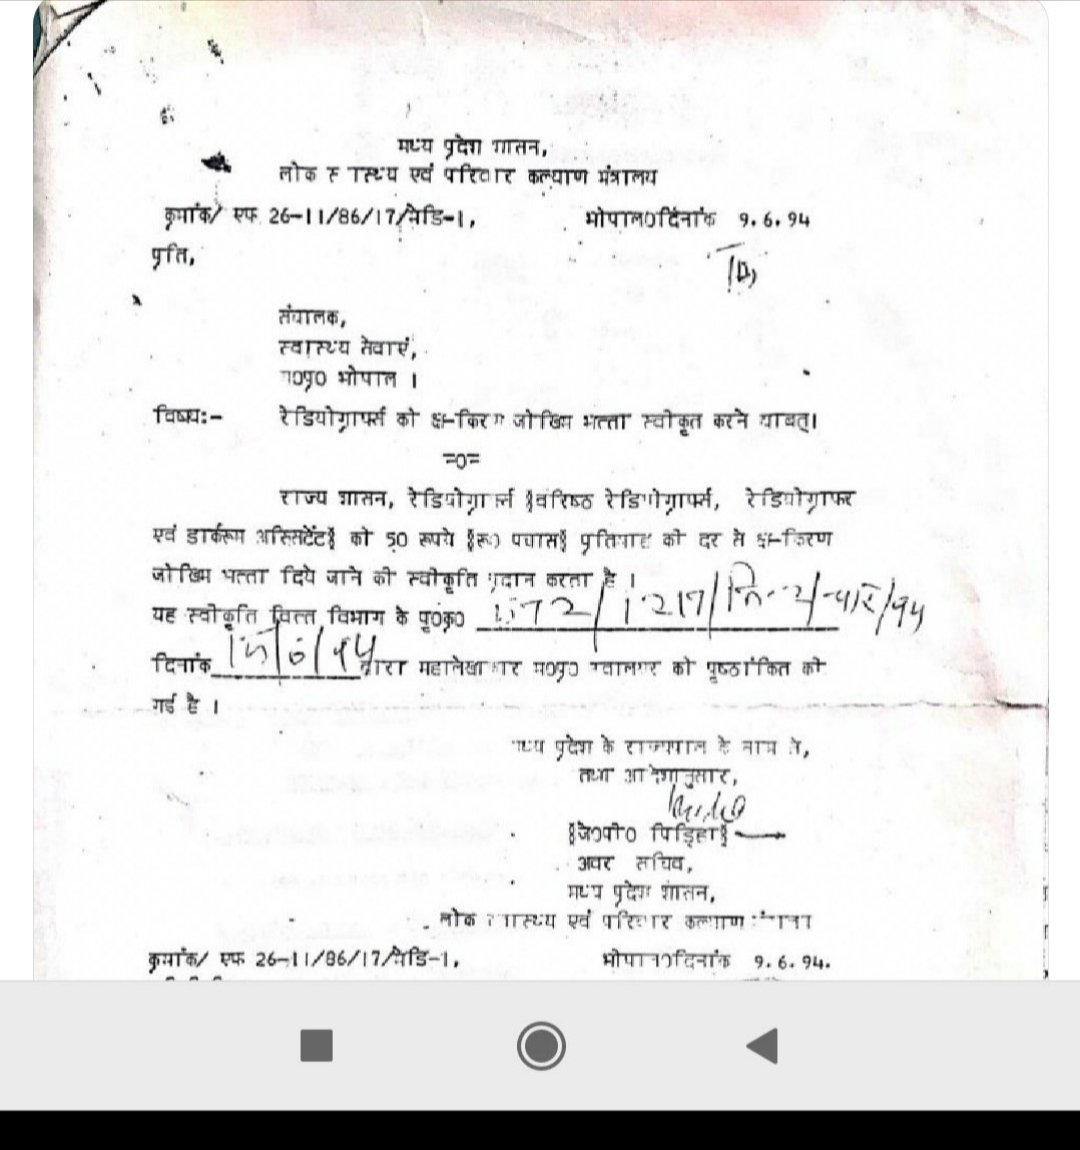 मध्य प्रदेश शासन,
लोक स्वास्थ्य एवं परिवार कल्याण मंत्रालय
क्रमांक/ एफ 26-11/86/17/मेडि-1, भोपाल0दिनांक 9.6.94
प्रति,
संचालक,
स्वास्थ्य सेवाएं,
म0प्र0 भोपाल ।
विषय:- रेडियोग्राफर्स को क्ष-किरण जोखिम भत्ता स्वीकृत करने बाबत्।
=0=
राज्य शासन, रेडियोग्राफर्स §वरिष्ठ रेडियोग्राफर्स, रेडियोग्राफर
एवं डार्करूम असिसटेंट§ को 50 रूपये §रू0 पचास§ प्रतिमाह की दर से क्ष-किरण
जोखिम भत्ता दिये जाने की स्वीकृति प्रदान करता है ।
यह स्वीकृति वित्त विभाग के पृ0क्र0
दिनांक द्वारा महालेखाकार म0प्र0 ग्वालियर को पृष्ठांकित की
गई है ।
मध्य प्रदेश के राज्यपाल के नाम से,
तथा आदेशानुसार,
§जे0पी0 पिड़िहा§
अवर सचिव,
मध्य प्रदेश शासन,
लोक स्वास्थ्य एवं परिवार कल्याण
क्रमांक/ एफ 26-11/86/17/मेडि-1, भोपाल0दिनांक 9.6.94.